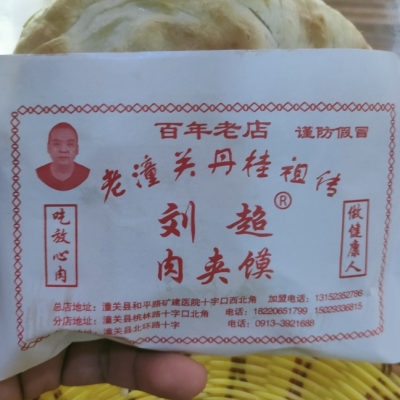 百年老店 谨防假冒
老潼关丹桂祖传
刘超®
肉夹馍
吃放心肉
做健康人
总店地址：潼关县和平路矿建医院十字口西北角 加盟电话：13152352786
分店地址：潼关县桃林路十字口北角 电话：18220651799 15029336815
潼关县北环路十字 电话：0913-3921688